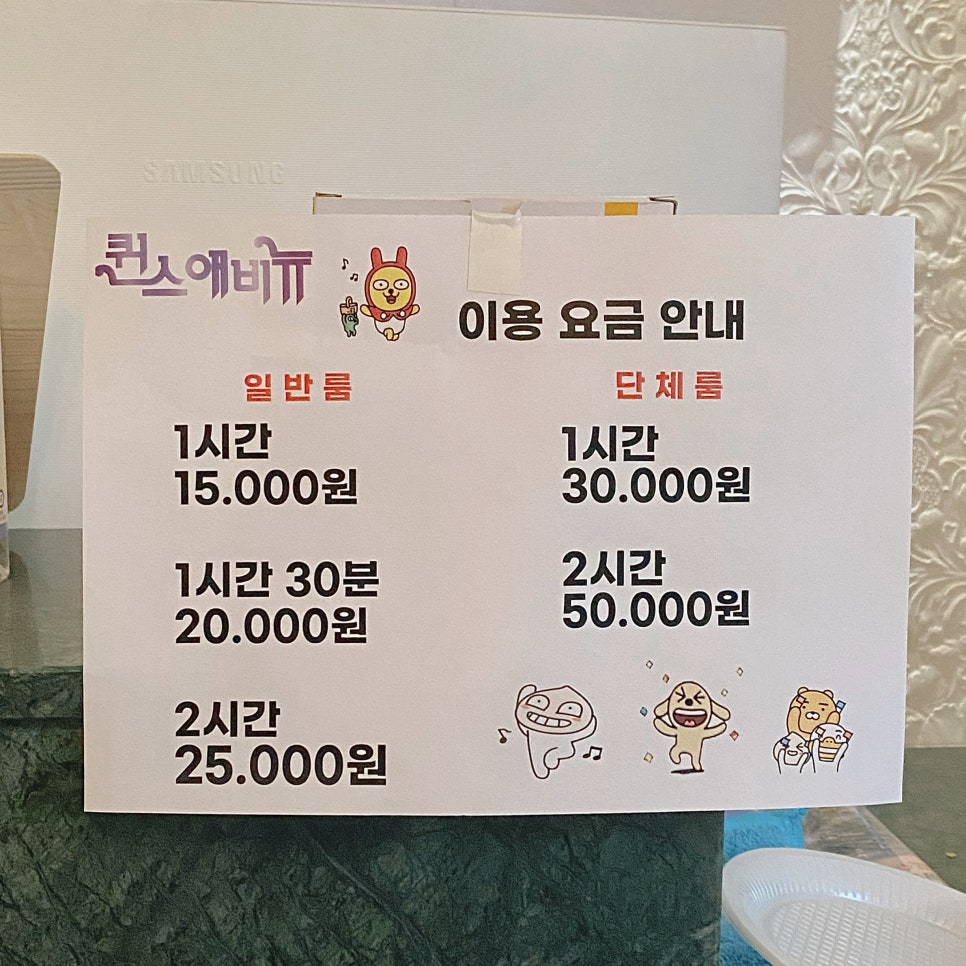 SAMSUNG
퀸스애비뉴
이용 요금 안내
일반룸
1시간
15.000원
1시간 30분
20.000원
2시간
25.000원
단체룸
1시간
30.000원
2시간
50.000원